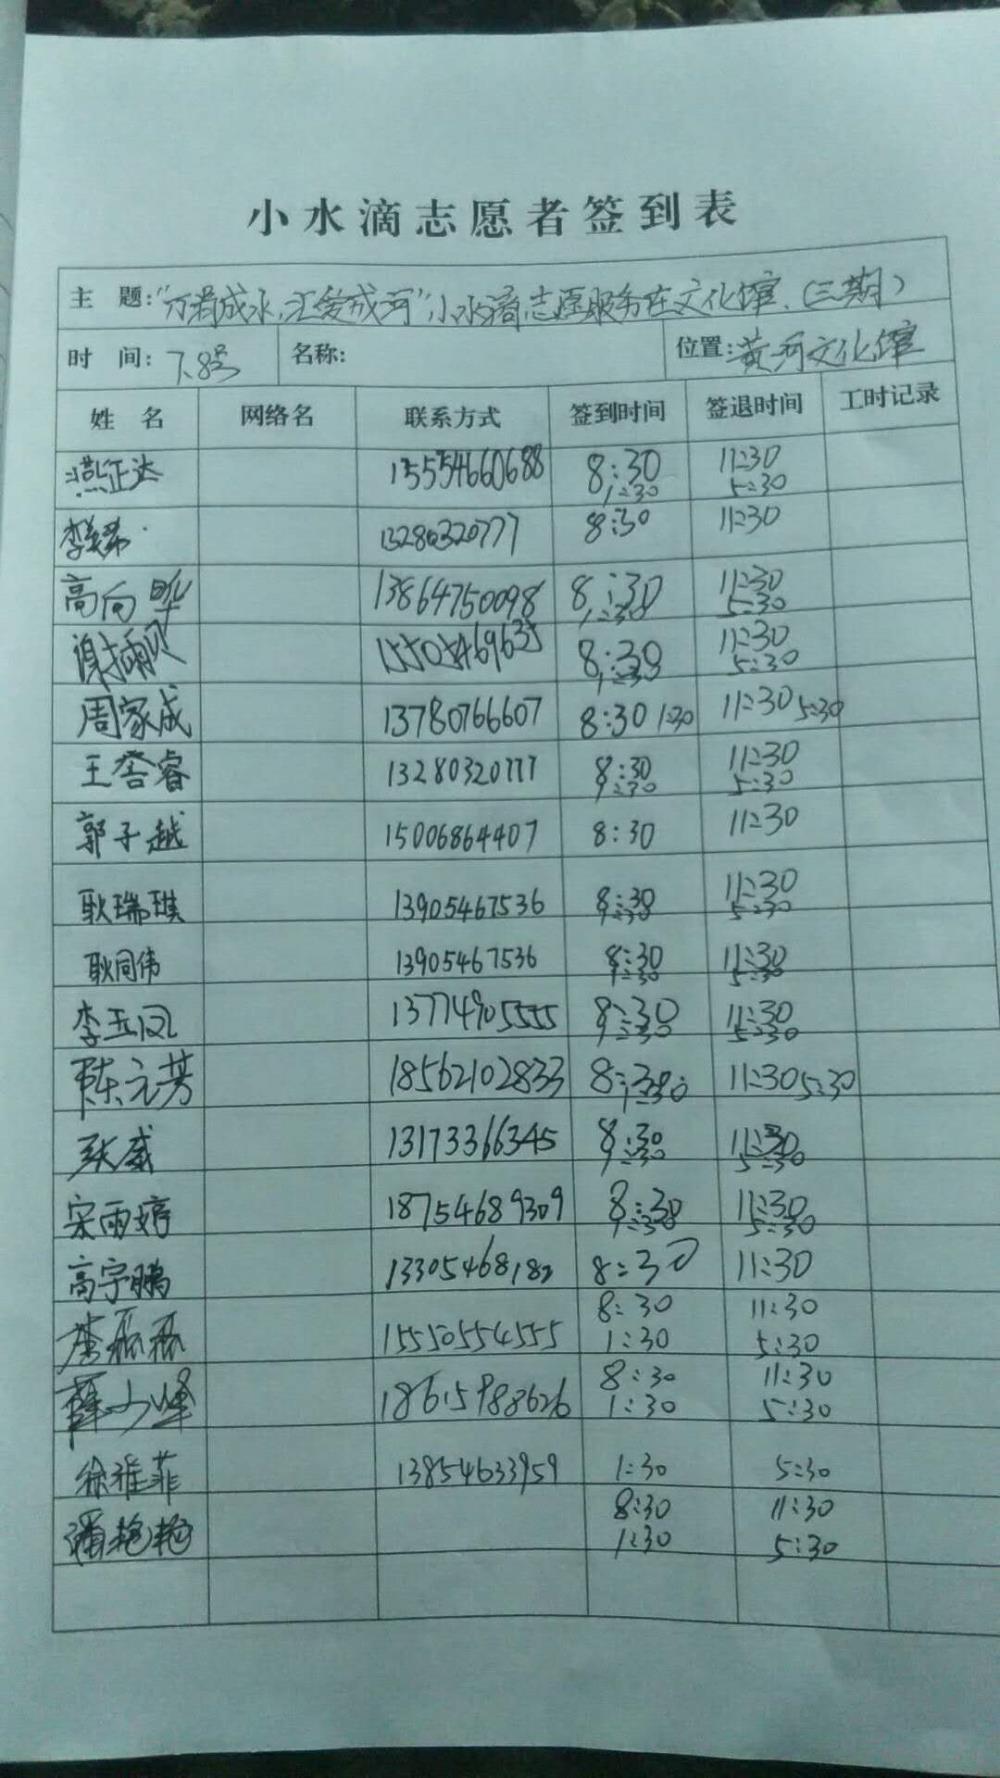 小水滴志愿者签到表
主 题:"万滴成水,汇爱成河"小水滴志愿服务在文化馆.(三期)
时 间: 7.8号 名称: 位置:黄河文化馆
姓 名 网络名 联系方式 签到时间 签退时间 工时记录
燕正达 15554660688 8:30 1:30 11:30 5:30
李 13280320777 8:30 11:30
高向 13864750098 8:30 1:30 11:30 5:30
谢 8:30 1:30 11:30 5:30
周家成 13780766607 8:30 1:30 11:30 5:30
王誉睿 13280320777 8:30 1:30 11:30 5:30
郭子越 15006864407 8:30 11:30
耿瑞琪 13905467536 8:30 1:30 11:30 5:30
耿同伟 13905467536 8:30 1:30 11:30 5:30
李玉凤 13774905555 8:30 1:30 11:30 5:30
陈元芳 18562102833 8:30 1:30 11:30 5:30
张威 13173366345 8:30 1:30 11:30 5:30
宋雨婷 18754689309 8:30 1:30 11:30 5:30
高宇鹏 8:30 11:30
李磊磊 15550554555 8:30 1:30 11:30 5:30
薛少峰 18615988626 8:30 1:30 11:30 5:30
徐雅菲 13854633959 1:30 5:30
潘艳艳 8:30 1:30 11:30 5:30